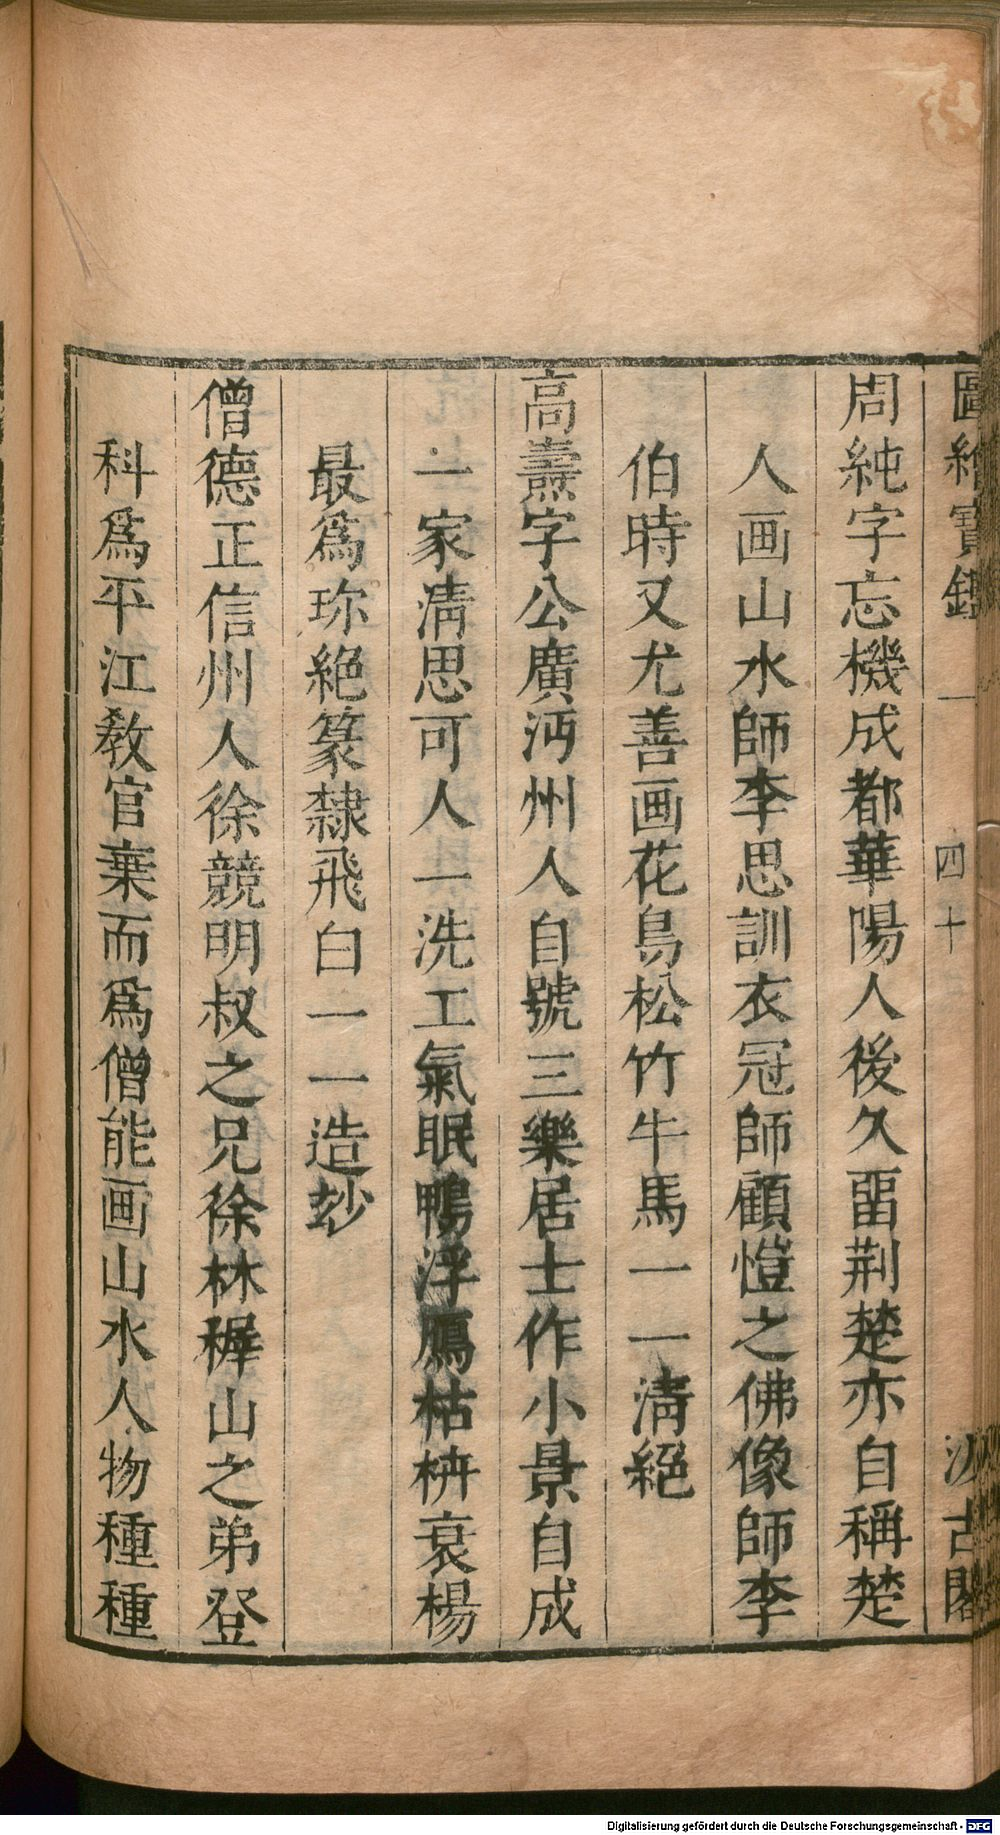 圖繪寶鑑 四十 汲古閣
周純字忘機成都華陽人後久畱荆楚亦自稱楚
人画山水師李思訓衣冠師顧愷之佛像師李
伯時又尤善画花鳥松竹牛馬一一淸絕
高燾字公廣沔州人自號三樂居士作小景自成
一家淸思可人一洗工氣眠鴨浮鴈枯枿衰楊
最爲珎絕篆隸飛白一一造玅
僧德正信州人徐競明叔之兄徐林穉山之弟登
科爲平江敎官棄而爲僧能画山水人物種種
Digitalisierung gefördert durch die Deutsche Forschungsgemeinschaft - DFG